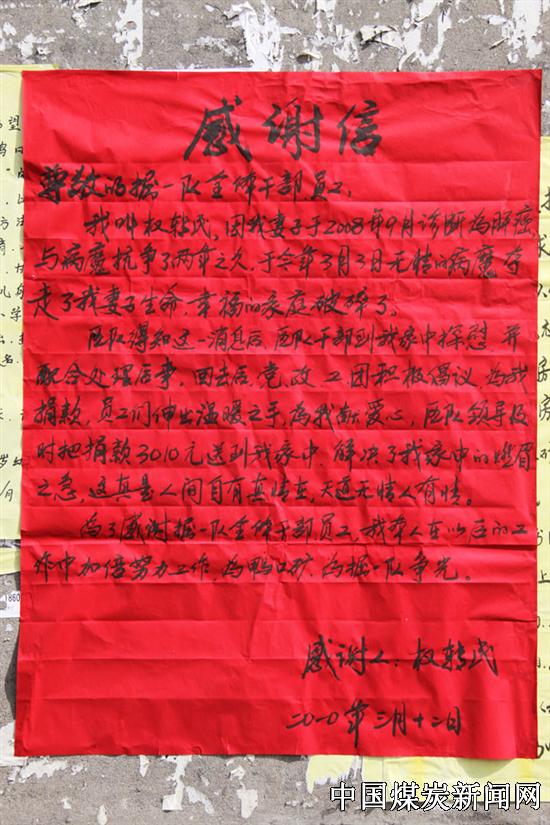 感谢信
尊敬的掘一队全体干部、员工:
我叫权转民,因我妻子于2008年9月诊断为肺癌,
与病魔抗争了两年之久,于今年3月3日无情的病魔夺
走了我妻子生命,幸福的家庭破碎了。
区队得知这一消息后,区队干部到我家中探慰,并
配合处理后事,回去后,党、政、工、团积极倡议,为我
捐款,员工们伸出温暖之手,为我献爱心,区队领导及
时把捐款3010元送到我家中,解决了我家中的燃眉
之急,这真是人间自有真情在,天道无情人有情。
为了感谢掘一队全体干部员工,我本人在以后的工
作中加倍努力工作,为鸭口矿、为掘一队争先。
感谢人:权转民
二〇一〇年三月十二日
中国煤炭新闻网